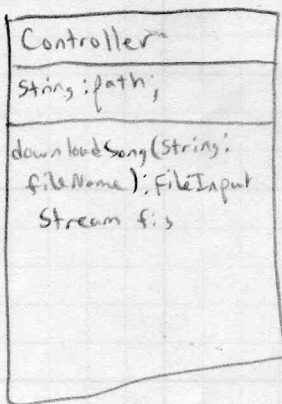 Controller
String: path;
downloadSong(String:
fileName): FileInput
Stream fis